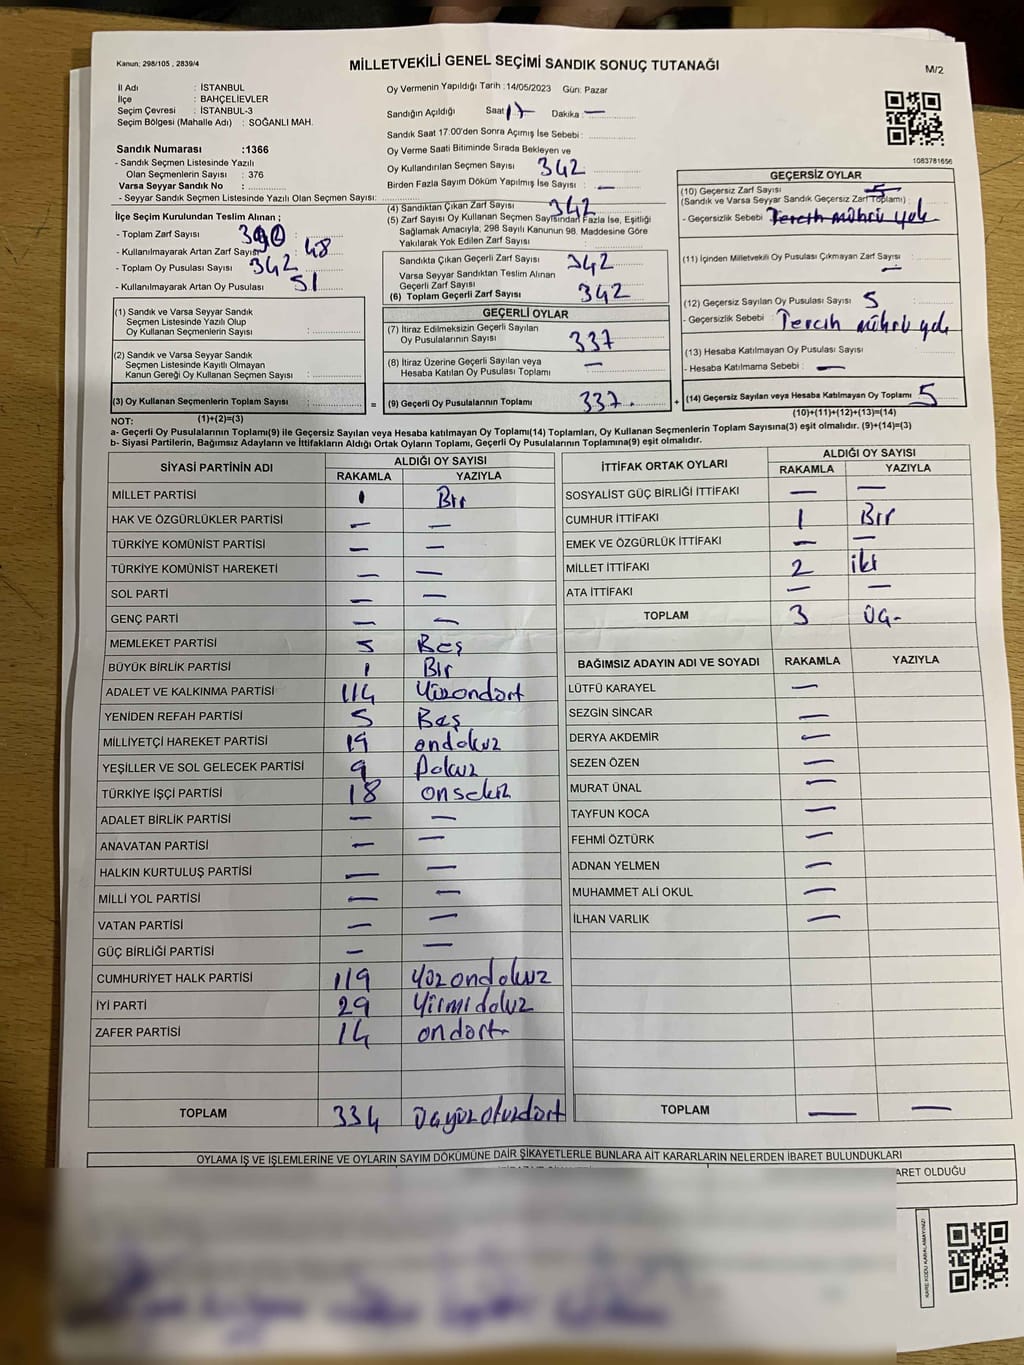 Kanun: 298/105 , 2839/4
MİLLETVEKİLİ GENEL SEÇİMİ SANDIK SONUÇ TUTANAĞI
M/2
İl Adı : İSTANBUL
İlçe : BAHÇELİEVLER
Seçim Çevresi : İSTANBUL-3
Seçim Bölgesi (Mahalle Adı) : SOĞANLI MAH.
Sandık Numarası :1366
- Sandık Seçmen Listesinde Yazılı
Olan Seçmenlerin Sayısı : 376
Varsa Seyyar Sandık No :
- Seyyar Sandık Seçmen Listesinde Yazılı Olan Seçmen Sayısı:
İlçe Seçim Kurulundan Teslim Alınan ;
- Toplam Zarf Sayısı :
- Kullanılmayarak Artan Zarf Sayısı : 48
- Toplam Oy Pusulası Sayısı : 342
- Kullanılmayarak Artan Oy Pusulası : 51
(1) Sandık ve Varsa Seyyar Sandık
Seçmen Listesinde Yazılı Olup
Oy Kullanan Seçmenlerin Sayısı :
(2) Sandık ve Varsa Seyyar Sandık
Seçmen Listesinde Kayıtlı Olmayan
Kanun Gereği Oy Kullanan Seçmen Sayısı :
(3) Oy Kullanan Seçmenlerin Toplam Sayısı : =
(1)+(2)=(3)
Oy Vermenin Yapıldığı Tarih :14/05/2023 Gün: Pazar
Sandığın Açıldığı Saat 17 Dakika : —
Sandık Saat 17:00'den Sonra Açımış İse Sebebi :
Oy Verme Saati Bitiminde Sırada Bekleyen ve
Oy Kullandırılan Seçmen Sayısı 342
Birden Fazla Sayım Döküm Yapılmış İse Sayısı : —
(4) Sandıktan Çıkan Zarf Sayısı 342
(5) Zarf Sayısı Oy Kullanan Seçmen Sayısından Fazla İse, Eşitliği
Sağlamak Amacıyla, 298 Sayılı Kanunun 98. Maddesine Göre
Yakılarak Yok Edilen Zarf Sayısı :
Sandıkta Çıkan Geçerli Zarf Sayısı 342
Varsa Seyyar Sandıktan Teslim Alınan
Geçerli Zarf Sayısı
(6) Toplam Geçerli Zarf Sayısı 342
GEÇERLİ OYLAR
(7) İtiraz Edilmeksizin Geçerli Sayılan
Oy Pusulalarının Sayısı 337
(8) İtiraz Üzerine Geçerli Sayılan veya
Hesaba Katılan Oy Pusulası Toplamı —
(9) Geçerli Oy Pusulalarının Toplamı 337. +
1083781656
GEÇERSİZ OYLAR
(10) Geçersiz Zarf Sayısı 5
(Sandık ve Varsa Seyyar Sandık Geçersiz Zarf Toplamı)
- Geçersizlik Sebebi : Tercih mührü yok
(11) İçinden Milletvekili Oy Pusulası Çıkmayan Zarf Sayısı : —
(12) Geçersiz Sayılan Oy Pusulası Sayısı 5
- Geçersizlik Sebebi : Tercih mührü yok
(13) Hesaba Katılmayan Oy Pusulası Sayısı
- Hesaba Katılmama Sebebi : —
(14) Geçersiz Sayılan veya Hesaba Katılmayan Oy Toplamı 5
(10)+(11)+(12)+(13)=(14)
NOT:
a- Geçerli Oy Pusulalarının Toplamı(9) ile Geçersiz Sayılan veya Hesaba katılmayan Oy Toplamı(14) Toplamları, Oy Kullanan Seçmenlerin Toplam Sayısına(3) eşit olmalıdır. (9)+(14)=(3)
b- Siyasi Partilerin, Bağımsız Adayların ve İttifakların Aldığı Ortak Oyların Toplamı, Geçerli Oy Pusulalarının Toplamına(9) eşit olmalıdır.
SİYASİ PARTİNİN ADI ALDIĞI OY SAYISI
RAKAMLA YAZIYLA
MİLLET PARTİSİ 1 Bir
HAK VE ÖZGÜRLÜKLER PARTİSİ — —
TÜRKİYE KOMÜNİST PARTİSİ — —
TÜRKİYE KOMÜNİST HAREKETİ — —
SOL PARTİ — —
GENÇ PARTİ — —
MEMLEKET PARTİSİ 5 Beş
BÜYÜK BİRLİK PARTİSİ 1 Bir
ADALET VE KALKINMA PARTİSİ 114 Yüzondört
YENİDEN REFAH PARTİSİ 5 Beş
MİLLİYETÇİ HAREKET PARTİSİ 19 ondokuz
YEŞİLLER VE SOL GELECEK PARTİSİ 9 Dokuz
TÜRKİYE İŞÇİ PARTİSİ 18 onsekiz
ADALET BİRLİK PARTİSİ — —
ANAVATAN PARTİSİ — —
HALKIN KURTULUŞ PARTİSİ — —
MİLLİ YOL PARTİSİ — —
VATAN PARTİSİ — —
GÜÇ BİRLİĞİ PARTİSİ — —
CUMHURİYET HALK PARTİSİ 119 yüzondokuz
İYİ PARTİ 29 Yirmidokuz
ZAFER PARTİSİ 14 ondört
TOPLAM 334 üçyüzotuzdört
İTTİFAK ORTAK OYLARI ALDIĞI OY SAYISI
RAKAMLA YAZIYLA
SOSYALİST GÜÇ BİRLİĞİ İTTİFAKI — —
CUMHUR İTTİFAKI 1 Bir
EMEK VE ÖZGÜRLÜK İTTİFAKI — —
MİLLET İTTİFAKI 2 iki
ATA İTTİFAKI — —
TOPLAM 3 üç-
BAĞIMSIZ ADAYIN ADI VE SOYADI RAKAMLA YAZIYLA
LÜTFÜ KARAYEL —
SEZGİN SİNCAR —
DERYA AKDEMİR —
SEZEN ÖZEN —
MURAT ÜNAL —
TAYFUN KOCA —
FEHMİ ÖZTÜRK —
ADNAN YELMEN —
MUHAMMET ALİ OKUL —
İLHAN VARLIK —
TOPLAM — —
OYLAMA İŞ VE İŞLEMLERİNE VE OYLARIN SAYIM DÖKÜMÜNE DAİR ŞİKAYETLERLE BUNLARA AİT KARARLARIN NELERDEN İBARET BULUNDUKLARI
ARET OLDUĞU
KARE KODU KARALAMAYINIZ!